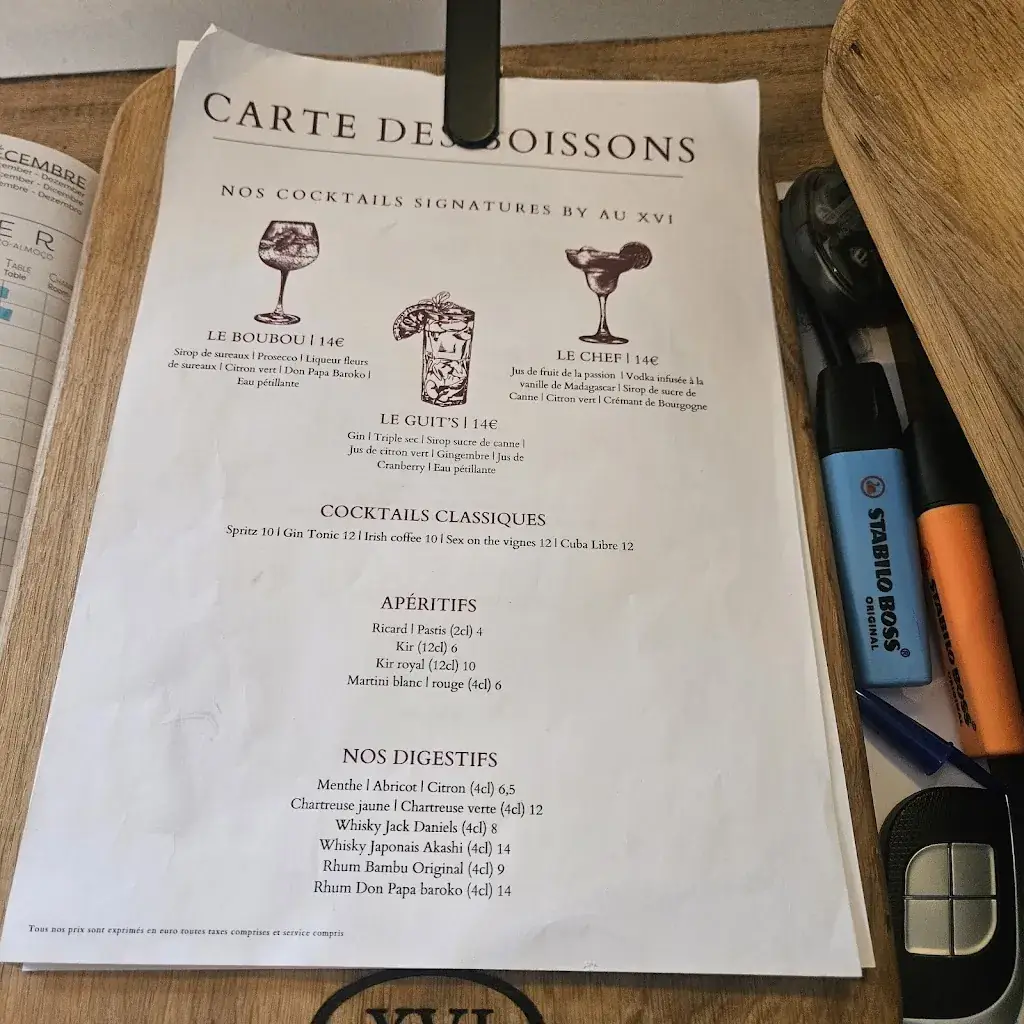 CARTE DES BOISSONS
NOS COCKTAILS SIGNATURES BY AU XVI
LE BOUBOU | 14€
Sirop de sureaux | Prosecco | Liqueur fleurs
de sureaux | Citron vert | Don Papa Baroko |
Eau pétillante
LE GUIT'S | 14€
Gin | Triple sec | Sirop sucre de canne |
Jus de citron vert | Gingembre | Jus de
Cranberry | Eau pétillante
LE CHEF | 14€
Jus de fruit de la passion | Vodka infusée à la
vanille de Madagascar | Sirop de sucre de
Canne | Citron vert | Crémant de Bourgogne
COCKTAILS CLASSIQUES
Spritz 10 | Gin Tonic 12 | Irish coffee 10 | Sex on the vignes 12 | Cuba Libre 12
APÉRITIFS
Ricard | Pastis (2cl) 4
Kir (12cl) 6
Kir royal (12cl) 10
Martini blanc | rouge (4cl) 6
NOS DIGESTIFS
Menthe | Abricot | Citron (4cl) 6,5
Chartreuse jaune | Chartreuse verte (4cl) 12
Whisky Jack Daniels (4cl) 8
Whisky Japonais Akashi (4cl) 14
Rhum Bambu Original (4cl) 9
Rhum Don Papa baroko (4cl) 14
Tous nos prix sont exprimés en euro toutes taxes comprises et service compris
XVI
ÉCEMBRE
ember - Dezember
cember - Dicembre
embre - Dezembro
E R
CO-ALMOÇO
TABLE
Table
Room
STABILO BOSS
ORIGINAL
STABILO BOSS